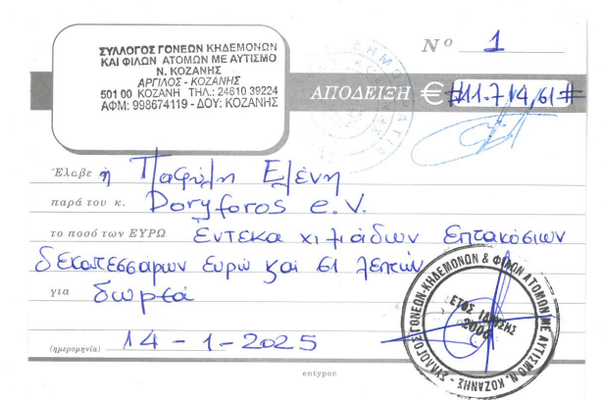 ΣΥΛΛΟΓΟΣ ΓΟΝΕΩΝ ΚΗΔΕΜΟΝΩΝ
ΚΑΙ ΦΙΛΩΝ ΑΤΟΜΩΝ ΜΕ ΑΥΤΙΣΜΟ
Ν. ΚΟΖΑΝΗΣ
ΑΡΓΙΛΟΣ - ΚΟΖΑΝΗΣ
501 00 ΚΟΖΑΝΗ ΤΗΛ.: 24610 39224
ΑΦΜ: 998674119 - ΔΟΥ: ΚΟΖΑΝΗΣ
Νο 1
ΑΠΟΔΕΙΞΗ € #11.714,61#
Έλαβε η Παφίλη Ελένη
παρά του κ. Doryforos e.V.
το ποσό των ΕΥΡΩ έντεκα χιλιάδων επτακόσιων
δεκατεσσάρων ευρώ και 61 λεπτών
για δωρεά
(ημερομηνία) 14-1-2025
ΣΥΛΛΟΓΟΣ ΓΟΝΕΩΝ-ΚΗΔΕΜΟΝΩΝ & ΦΙΛΩΝ ΑΤΟΜΩΝ ΜΕ ΑΥΤΙΣΜΟ Ν. ΚΟΖΑΝΗΣ -
ΕΤΟΣ ΙΔΡΥΣΗΣ
2000
entypor